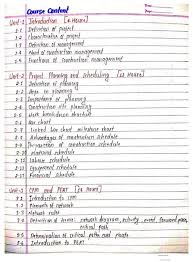 Course Content
Unit-1 Introduction [6 Hours]
1.1 Definition of project
1.2 Characteristics of project
1.3 Definition of management
1.4 Need of construction management
1.5 Functions of construction management
Unit-2 Project Planning and Scheduling [12 Hours]
2.1 Definition of planning
2.2 Steps in planning
2.3 Importance of planning
2.4 Construction site planning
2.5 Work breakdown structure
2.6 Bar chart
2.7 Linked bar chart milestone chart
2.8 Advantages of construction schedule
2.9 Preparation of construction schedule
2.10 Material schedule
2.11 Labour schedule
2.12 Equipment schedule
2.13 Financial schedule
Unit-3 CPM and PERT [12 Hours]
3.1 Introduction to CPM
3.2 Elements of network
3.3 Network rules
3.4 Definition of terms: network diagram, activity, event, forward pass, critical path
3.5 Determination of critical path and floats
3.6 Introduction to PERT